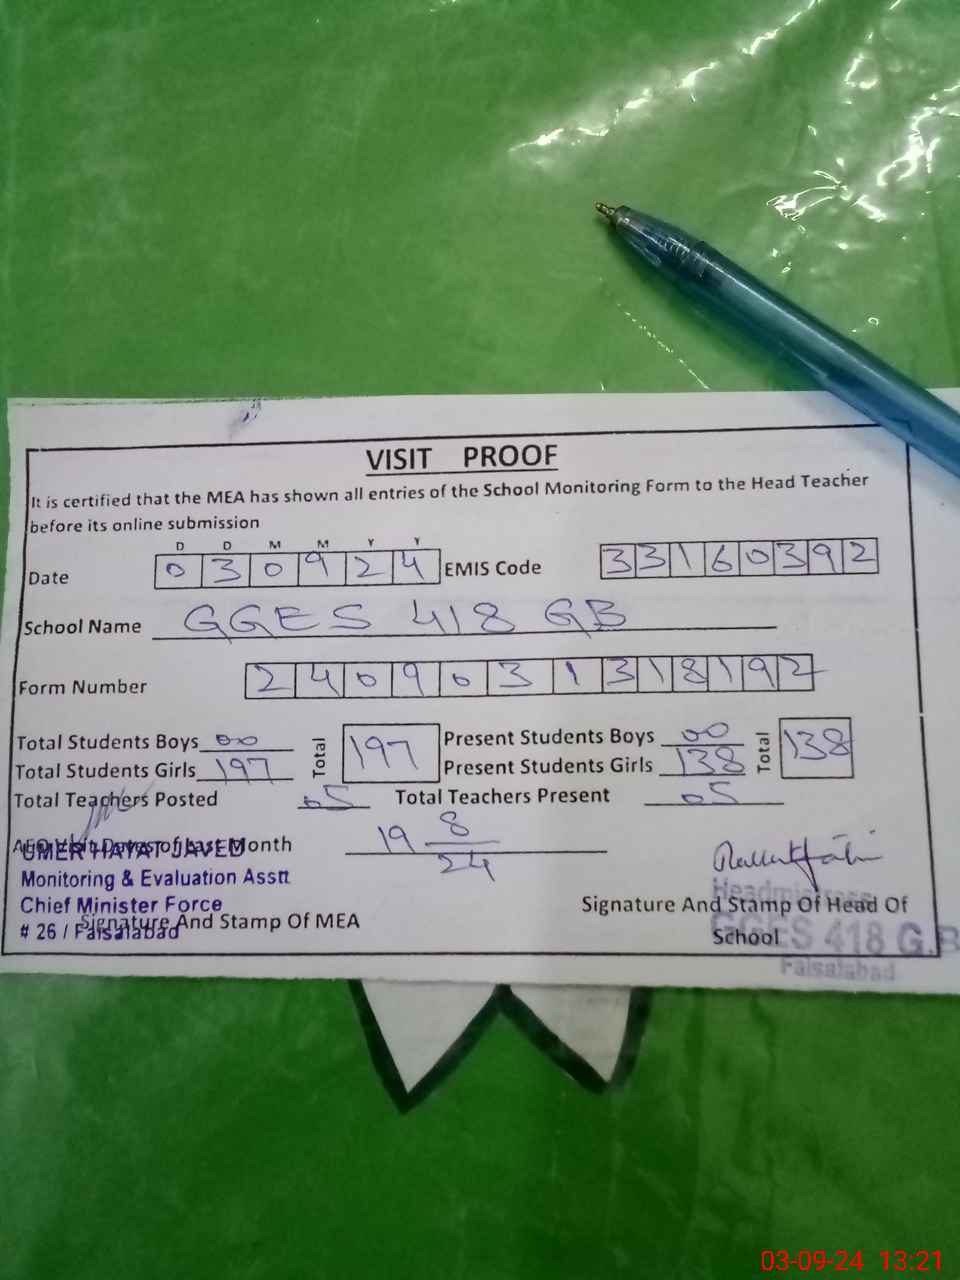 VISIT PROOF
It is certified that the MEA has shown all entries of the School Monitoring Form to the Head Teacher
before its online submission
D D M M Y Y
Date 0 3 0 9 2 4 EMIS Code 3 3 1 6 0 3 9 2
School Name GGES 418 GB
Form Number 2 4 0 9 0 3 1 3 1 8 1 9 2
Total Students Boys 00 Total 197 Present Students Boys 00 Total 138
Total Students Girls 197 Present Students Girls 138
Total Teachers Posted 05 Total Teachers Present 05
AEO Visit Dates of Last Month 19 8/24
UMER HAYAT JAVED
Monitoring & Evaluation Asstt
Chief Minister Force
# 26 / Faisalabad
Signature And Stamp Of MEA
Signature And Stamp Of Head Of
School
Headmistress
GGES 418 G.B
Faisalabad
03-09-24 13:21